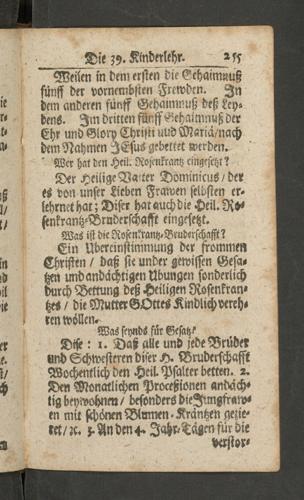 Die 39. Kinderlehr. 255
Weilen in dem ersten die Gehaimnuß
fünff der vornembsten Frewden. In
dem anderen fünff Gehaimnuß deß Ley-
dens. Im dritten fünff Gehaimnuß der
Ehr und Glory Christi und Mariä/ nach
dem Nahmen JEsus gebettet werden.
Wer hat den Heil. Rosenkrantz eingesetzt?
Der Heilige Vatter Dominicus/ der
es von unser Lieben Frawen selbsten er-
lehrnet hat; Diser hat auch die Heil. Ro-
senkrantz-Bruderschafft eingesetzt.
Was ist die Rosenkrantz-Bruderschafft?
Ein Ubereinstimmung der frommen
Christen/ daß sie under gewissen Gesa-
tzen und andächtigen Ubungen sonderlich
durch Bettung deß Heiligen Rosenkran-
tzes/ die Mutter GOttes Kindlich vereh-
ren wöllen.
Was seynds für Gesatz?
Dise: 1. Daß alle und jede Brüder
und Schwesteren diser H. Bruderschafft
Wochentlich den Heil. Psalter betten. 2.
Den Monatlichen Proceßionen andäch-
tig beywohnen/ besonders die Jungfraw-
en mit schönen Blumen-Kräntzen gezie-
ret/ ꝛc. 3. An den 4. Jahr-Tägen für die
verstor-